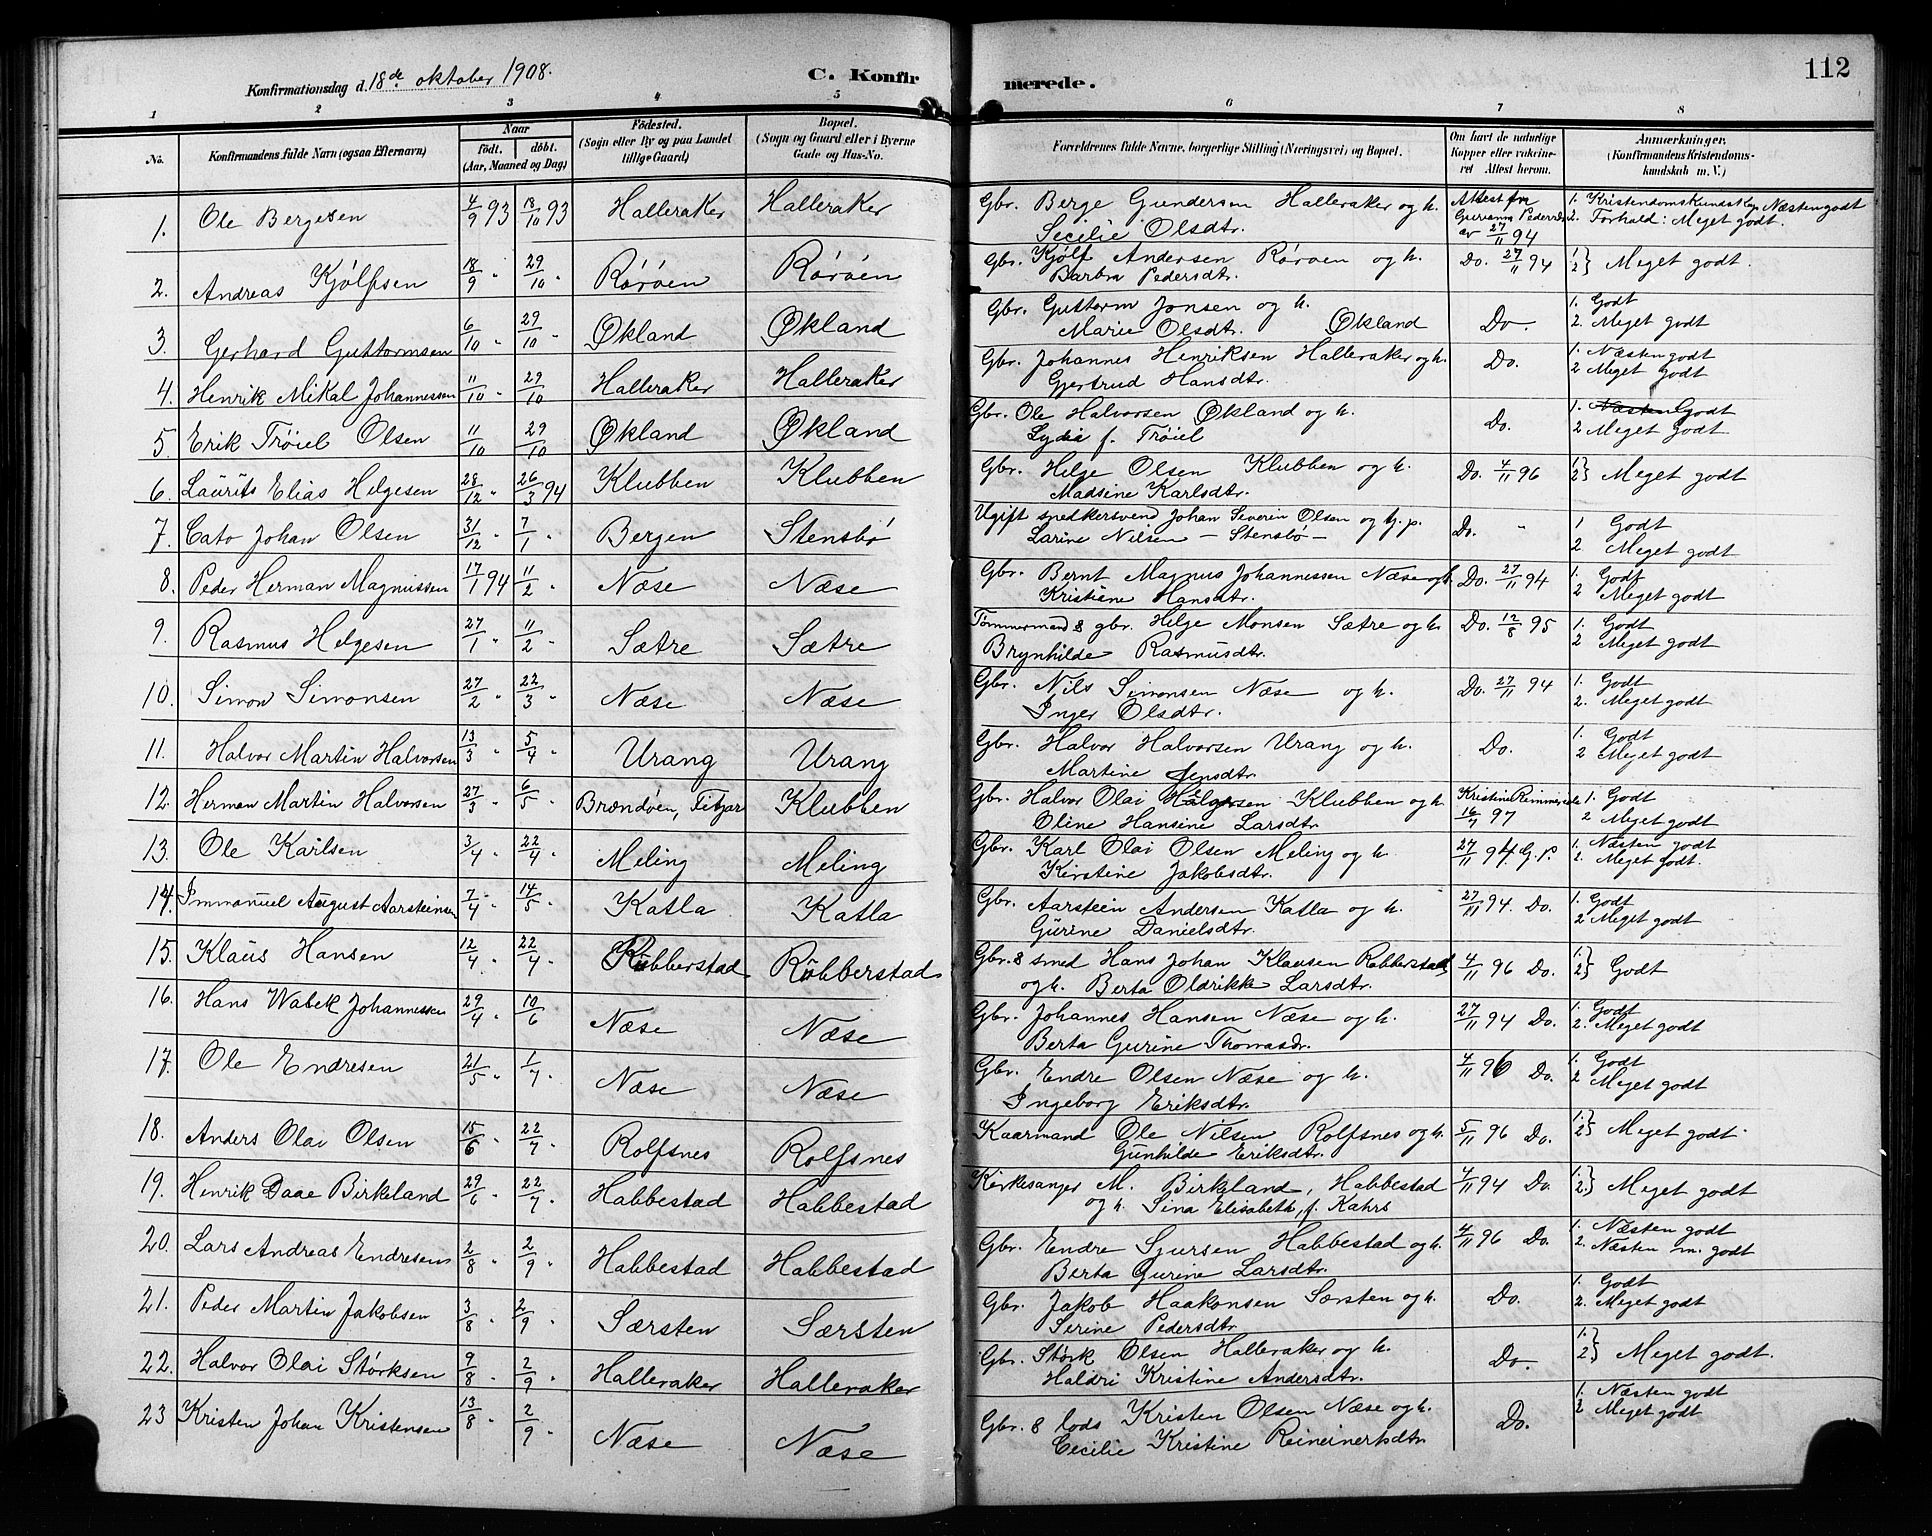 Konfirmationsdag d. 18de oktober 1908.
C. Konfir
merede.
112
1 2 3 4 5 6 7 8
No. Konfirmandens fulde Navn (ogsaa Efternavn) Naar født. døbt. (Aar, Maaned og Dag) Fødested. (Sogn eller By og paa Landet tillige Gaard) Bopæl. (Sogn og Gaard eller i Byerne Gade og Hus-No. Forældrenes fulde Navne, borgerlige Stilling (Næringsvei) og Bopæl. Om havt de naturlige Kopper eller vakcineret Attest herom. Anmærkninger. (Konfirmandens Kristendomskundskab m. V.)
1. Ole Bergesen 4/9 93 13/10 93 Halleraker Halleraker Gbr. Berge Gundersen Halleraker og h. Attest fra 1. Kristendomskundskap Næsten godt
Secilie Olsdtr. av 27/11 94 2. Forhold: Meget godt.
2. Andreas Kjølfsen 18/9 " 29/10 " Rørøen Rørøen Gbr. Kjølf Andersen Rørøen og h. Do. 27/11 94 1. 2} Meget godt.
Barbra Pedersdtr.
3. Gerhard Guttormsen 6/10 " 29/10 " Økland Økland Gbr. Guttorm Jonsen og h. Do. 1. Godt
Marie Olsdtr. Økland 2. Meget godt
4. Henrik Mikal Johannessen 11/10 29/10 Halleraker Halleraker Gbr. Johannes Henriksen Halleraker og h. Do. 1. Næsten godt
Gjertrud Hansdtr. 2 Meget godt
5. Erik Trøiel Olsen 11/10 29/10 Økland Økland Gbr. Ole Halvorsen Økland og h. Do. 1. Næsten Godt
Lydia f. Trøiel 2 Meget godt
6. Laurits Elias Helgesen 28/12 " 26/3 94 Klubben Klubben Gbr. Helge Olsen Klubben og h. Do. 4/11 96 1 2} Meget godt
Madsine Karlsdtr.
7. Cato Johan Olsen 31/12 " 7/1 " Bergen Stensbø Ugift snedkersvend Johan Severin Olsen og Do. " 1 Godt
Larine Nilsen – Stensbø – 2. Meget godt
8. Peder Herman Magnussen 17/1 94 11/2 " Næse Næse Gbr. Bernt Magnus Johannessen Næse og h. Do. 27/11 94 1. Godt
Kristiane Hansdtr. 2 Meget godt
9. Rasmus Helgesen 27/1 " 11/2 " Sætre Sætre Tømmermand & gbr. Helge Monsen Sætre og h. Do. 12/8 95 1. Godt
Brynhilde Rasmusdtr. 2 Meget godt
10. Simon Simonsen 27/2 " 22/3 " Næse Næse Gbr. Nils Simonsen Næse og h. Do. 27/11 94 1. Godt
Inger Olsdtr. 2. Meget godt
11. Halvor Martin Halvorsen 13/3 " 5/4 " Urang Urang Gbr. Halvor Halvorsen Urang og h. Do. 1. Godt
Martine Jensdtr. 2 Meget godt
12. Herman Martin Halvorsen 27/3 " 6/5 " Brændøen, Fitjar Klubben Gbr. Halvor Olai Helgesen Klubben og h. Kristine 1. Godt
Oline Hansine Larsdtr. 16/7 97 2 Meget godt
13. Ole Karlsen 3/4 " 22/4 " Meling Meling Gbr. Karl Olai Olsen Meling og h. 27/11 94 G. P. 1. Næsten godt
Kirstine Jakobsdtr. 2. Meget godt.
14. Immanuel August Aarsteinsen 7/4 " 14/5 " Katla Katla Gbr. Aarstein Andersen Katla og h. 27/11 94. Do. 1. Godt
Gurine Danielsdtr. 2 Meget godt
15. Klaus Hansen 12/4 " 22/4 " Rubberstad Rubberstad Gbr. & smed Hans Johan Klausen Rubberstad 4/11 96 Do. 1. 2} Godt
og h. Berta Oldrikke Larsdtr.
16. Hans Wabek Johannessen 29/4 " 10/6 " Næse Næse Gbr. Johannes Hansen Næse og h. 27/11 94 Do. 1. Godt
Berta Gurine Thomasdr. 2. Meget godt
17. Ole Endresen 21/5 " 1/7 " Næse Næse Gbr. Endre Olsen Næse og h. 4/11 96 Do. 1. Godt
Ingeborg Eriksdtr. 2 Meget godt
18. Anders Olai Olsen 15/6 " 22/7 " Rolfsnes Rolfsnes Kaarmand Ole Nilsen Rolfsnes og h. 5/11 96 Do. 1. 2} Meget godt.
Gunhilde Eriksdtr.
19. Henrik Daae Birkeland 29/6 " 22/7 " Habbestad Habbestad Kirkesanger M. Birkeland, Habbestad 4/11 94 Do. 1. 2.} Meget godt
og h. Sina Elisabeth, f. Kahrs
20. Lars Andreas Endresen 2/8 " 2/9 " Habbestad Habbestad Gbr. Endre Sjursen Habbestad og h. 4/11 96 Do. 1. Næsten godt
Berta Gurine Larsdtr. 2. Næsten m. godt
21. Peder Martin Jakobsen 3/8 " 2/9 " Særsten Særsten Gbr. Jakob Haakonsen Særsten og h. Do. 1. Godt
Serine Pedersdtr. 2. Meget godt
22. Halvor Olai Størksen 9/8 " 2/9 " Halleraker Halleraker Gbr. Størk Olsen Halleraker og h. Do. 1. 2} Meget godt.
Haldri Kristine Andersdtr.
23 Kristen Johan Kristensen 13/8 " 2/9 " Næse Næse Gbr. & lods Kristen Olsen Næse og h. Do. 1. Næsten godt
Cecilie Kristine Reineinertsdtr 2 Meget godt